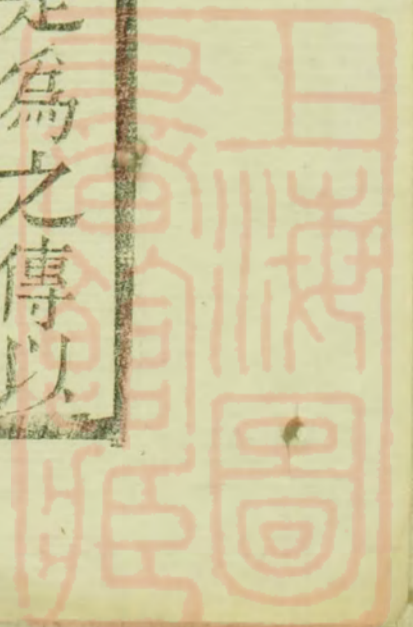 上海圖
書館藏
為之傳以